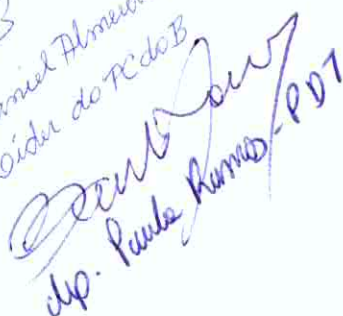 Daniel Almeida
Líder do PCdoB
dep. Paulo Ramos - PDT